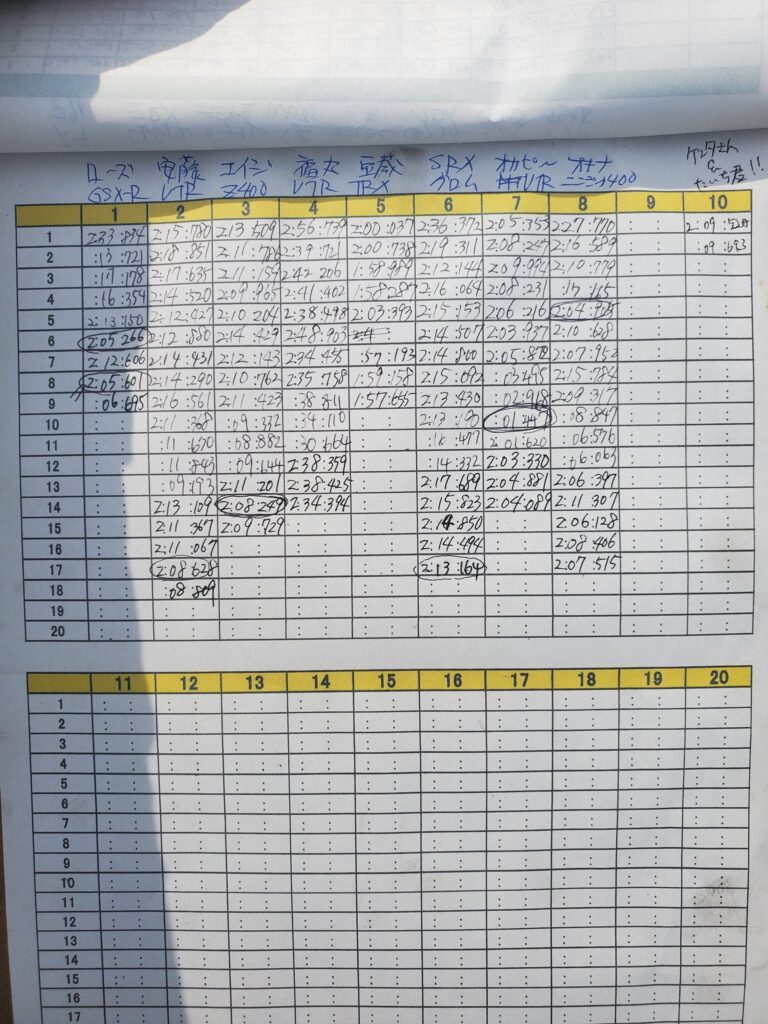 ローズ 安藤 エイジ 福太 豆蔵 SRX オカピー オキナ ケンタさん
GSX-R VTR Z400 VTR TRX グロム VTR ニンジャ400 & たいち君!!
1 2 3 4 5 6 7 8 9 10
1 2:33:834 2:15:780 2:13:509 2:56:739 2:00:037 2:36:372 2:05:353 2:27:770 : : 2:09:520
2 :13:721 2:18:851 2:11:786 2:39:721 2:00:738 2:19:311 2:08:247 2:16:589 : : :09:693
3 :17:178 2:17:635 2:11:159 2:42:206 1:58:989 2:12:144 2:09:994 2:10:779 : : : :
4 :16:354 2:14:520 2:09:965 2:41:402 1:58:287 2:16:064 2:08:231 :17:165 : : : :
5 2:13:150 2:12:427 2:10:204 2:38:498 2:03:393 2:15:153 2:06:216 2:04:925 : : : :
6 2:05:266 2:12:880 2:14:429 2:48:903 2:14:507 2:03:937 2:10:628 : : : :
7 2:12:606 2:14:931 2:12:143 2:34:455 :57:193 2:14:800 2:05:872 2:07:952 : : : :
8 2:05:601 2:14:290 2:10:762 2:35:758 1:59:158 2:15:092 :03:495 2:15:784 : : : :
9 :06:695 2:16:561 2:11:423 :38:811 1:57:655 2:13:430 :02:918 2:09:317 : : : :
10 : : 2:11:368 :09:332 :34:110 : : 2:13:190 :01:247 :08:847 : : : :
11 : : :11:670 :08:882 :30:664 : : :16:477 2:01:620 :06:576 : : : :
12 : : :11:843 :09:644 2:38:359 : : :14:332 2:03:330 :06:063 : : : :
13 : : :09:193 2:11:201 2:38:425 : : 2:17:689 2:04:881 2:06:397 : : : :
14 : : 2:13:109 2:08:249 2:34:394 : : 2:15:823 2:04:089 2:11:307 : : : :
15 : : 2:11:367 2:09:729 : : : : 2:14:850 : : 2:06:128 : : : :
16 : : 2:11:067 : : : : : : 2:14:494 : : 2:08:406 : : : :
17 : : 2:08:628 : : : : : : 2:13:164 : : 2:07:515 : : : :
18 : : :08:809 : : : : : : : : : : : : : : : :
19 : : : : : : : : : : : : : : : : : : : :
20 : : : : : : : : : : : : : : : : : : : :
11 12 13 14 15 16 17 18 19 20
1 : : : : : : : : : : : : : : : : : : : :
2 : : : : : : : : : : : : : : : : : : : :
3 : : : : : : : : : : : : : : : : : : : :
4 : : : : : : : : : : : : : : : : : : : :
5 : : : : : : : : : : : : : : : : : : : :
6 : : : : : : : : : : : : : : : : : : : :
7 : : : : : : : : : : : : : : : : : : : :
8 : : : : : : : : : : : : : : : : : : : :
9 : : : : : : : : : : : : : : : : : : : :
10 : : : : : : : : : : : : : : : : : : : :
11 : : : : : : : : : : : : : : : : : : : :
12 : : : : : : : : : : : : : : : : : : : :
13 : : : : : : : : : : : : : : : : : : : :
14 : : : : : : : : : : : : : : : : : : : :
15 : : : : : : : : : : : : : : : : : : : :
16 : : : : : : : : : : : : : : : : : : : :
17 : : : : : : : : : : : : : : : : : : : :